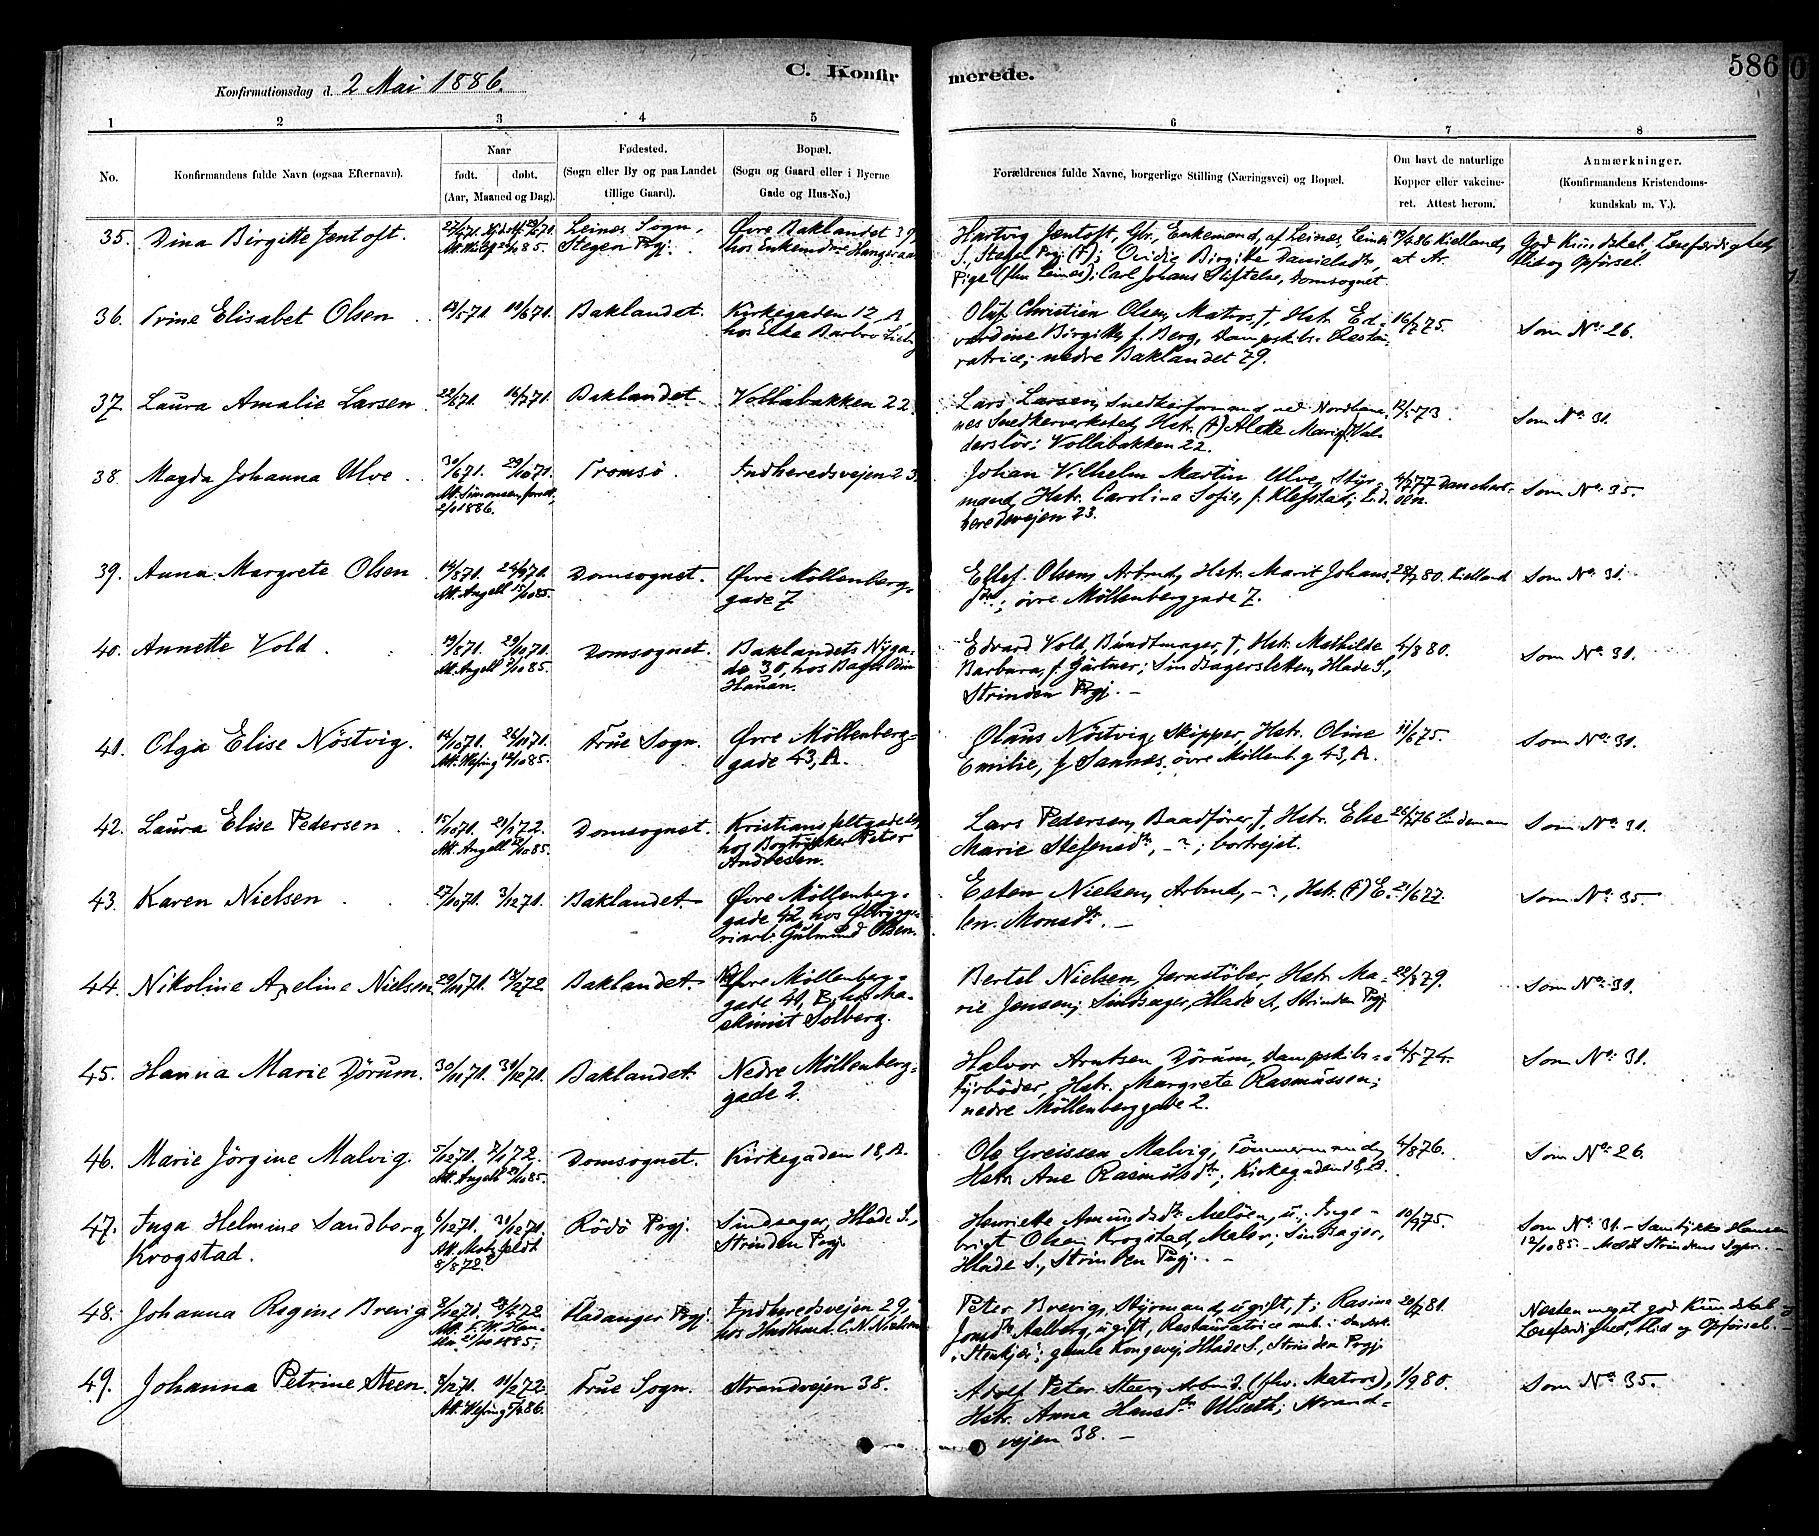 586
C. Konfirmerede.
Konfirmationsdag d. 2 Mai 1886.
1 2 3 4 5 6 7 8
No.
Konfirmandens fulde Navn (ogsaa Efternavn).
Naar
født. døbt.
(Aar, Maaned og Dag).
Fødested.
(Sogn eller By og paa Landet
tillige Gaard).
Bopæl.
(Sogn og Gaard eller i Byerne
Gade og Hus-No.)
Forældrenes fulde Navne, borgerlige Stilling (Næringsvei) og Bopæl.
Om havt de naturlige
Kopper eller vakcine-
ret. Attest herom.
Anmærkninger.
(Konfirmandens Kristendoms-
kundskab m. V.).
35. Dina Birgitte Jentoft.
Leines Sogn,
Stegen Prgj.
Øvre Baklandet 39,
hos Enkemdm
Hartvig Jentoft, Gbr., Enkemand, af Leines, Leines
S., Stegen Prgj. (†); Ovidie Birgitte Danielsdtr,
Pige (fhv. Leines); Carl Johans Stiftelse, Domsognet.
Kielland,
God Kundskab, Læsefærdighed,
Flid og Opførsel.
36. Trine Elisabet Olsen
12/5 70. 19/6 70.
Baklandet.
Kirkegaden 12 A
hos Enke Barbro
Oluf Christian Olsen, Matros, †, Hstr. Ed-
vardine Birgitte, f. Berg, Dampskibs-Restau-
ratrice; nedre Baklandet 79.
16/7 75.
Som No. 26.
37. Laura Amalie Larsen
22/6 70. 16/7 70.
Baklandet
Vollabakken 22
Lars Larsen, Snedkerformand ved Nordbane-
nes Snedkerverksted, Hstr. (†) Alette Marie Val-
derslöv; Vollabakken 22.
12/5 73.
Som No. 31.
38. Magda Johanna Ulve.
30/6 70. 29/10 70.
Att. Simonsen
2/10 1886.
Tromsö.
Indheredsvejen 23.
Johan Vilhelm Martin Ulve, Styr-
mand, Hstr. Carolina Sofie, f. Klefstad; Ind-
heredsvejen 23.
Som No. 35.
39. Anna Margrete Olsen
14/8 70. 24/9 70.
Att. Angell 15/10 85.
Domsognet.
Øvre Möllenberg-
gade 7
Ellef Olsen, Arbmd, Hstr. Marit Johans-
dtr.; övre Möllenberggade 7.
28/7 80. Kielland
Som No. 31.
40. Annette Vold
19/8 70. 29/10 70.
Att. Angell 7/10 85.
Domsognet.
Baklandets Nyga-
de 30, hos Bager Odin
Hauan.
Edvard Vold, Bundtmager, †, Hstr. Mathilde
Barbara, f. Gartner; Sindsagersletten, Hlade S.,
Strinden Prgj. –
4/8 80.
Som No. 31.
41. Olga Elise Nöstvig.
14/10 70. 26/11 70.
Att. Wefring 12/10 85.
Frue Sogn.
Øvre Möllenberg-
gade 43, A.
Olaus Nöstvig, Skipper, Hstr. Oline
Emilie, f. Sannæs; övre Möllenb.g. 43, A.
11/6 75.
Som No. 31.
42. Laura Elise Pedersen
15/10 70. 21/1 72.
Att. Angell 12/10 85.
Domsognet.
Kristiansfeltgade
hos Bogtrykker Peter
Andresen.
Lars Pedersen, Baadförer, †, Hstr. Else
Marie Stefensdtr, – ? ; bortrejst.
26/7 76 Lindeman
Som No. 31.
43. Karen Nielsen
27/10 70. 3/12 70.
Baklandet
Øvre Möllenberg-
gade 42, hos Ølbrygge-
riarb. Gulmund Olsen.
Esten Nielsen, Arbmd, – ? , Hstr. (†) E-
len Monsdtr. –
21/6 77.
Som No. 35.
44. Nikoline Axeline Nielsen
29/10 70. 18/2 72
Baklandet.
Øvre Möllenberg-
gade 40, B, hos Ma-
skinist Solberg.
Bertel Nielsen, Jernstöber, Hstr. Ma-
rie Jensen; Sindsager, Hlade S., Strinden Prgj.
22/8 79.
Som No. 31.
45. Hanna Marie Dörum.
30/11 70. 31/12 70.
Baklandet.
Nedre Möllenberg-
gade 2.
Halvor Arntsen Dörum, Dampskibs-
fyrböder, Hstr. Margrete Rasmussen;
nedre Möllenberggade 2.
4/5 74.
Som No. 31.
46. Marie Jörgine Malvig.
5/12 70. 7/1 72.
Domsognet.
Kirkegaden 18, A.
Ole Greissen Malvig, Tömmermand,
Hstr. Ane Rasmusdtr; Kirkegaden 18, A.
4/8 76.
Som No. 26.
47. Inga Helmine Sandberg
Krogstad.
6/12 70. 31/12 70.
Att. Motzfeldt
8/8 72.
Rödö Prgj.
Sindsager, Hlade S.,
Strinden Prgj.
Henriette Amundsdtr. Melöen, u.; Inge-
brigt Olsen Krogstad, Maler; Sindsager,
Hlade S., Strinden Prgj. –
10/9 75.
Som No. 31. – Samtykke Hansen
12/10 85. – Meldt Strindens Sogepr. –
48. Johanna Regine Brevig
Fladanger Prgj.
Indheredsvejen 29,
hos Hudhand. C. N. Nielsen
Peter Brevig, Styrmand, ugift, †; Rasina
Jonsdtr. Aalberg, ugift, Restauratrice omb. i Dampsk.
"Stenkjer"; gamle Kongevej, Hlade S., Strinden Prgj.
20/7 81.
Næsten meget god Kundskab,
Læsefærdighed, Flid og Opførsel. –
49. Johanna Petrine Steen.
8/12 70. 11/2 72.
Att. Wefring 5/4 86.
Frue Sogn.
Strandvejen 38.
Adolf Peter Steen, Arbmd. (fhv. Matros),
Hstr. Anna Hansdtr. Ulseth; Strand-
vejen 38. –
1/9 80.
Som No. 35.